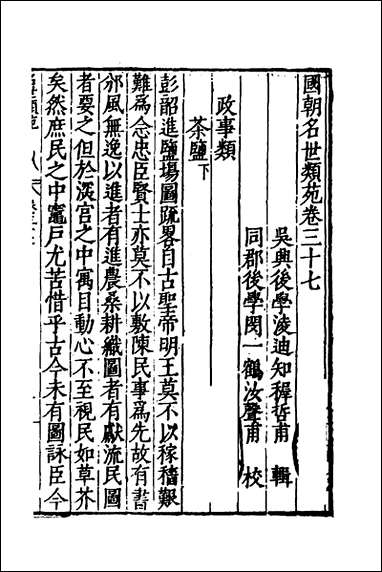 國朝名世類苑卷三十七
吳興後學凌迪知穉哲甫 輯
同郡後學閔一鶴汝聲甫 校
政事類
茶鹽下
彭韶進鹽場圖䟽畧自古聖帝明王莫不以稼穡艱
難爲念忠臣賢士亦莫不以敷陳民事爲先故有書
邠風無逸以進者有進農桑耕織圖者有獻流民圖
者要之但於深宫之中寓目動心不至視民如草芥
矣然庶民之中竈戶尤苦惜乎古今未有圖詠臣今